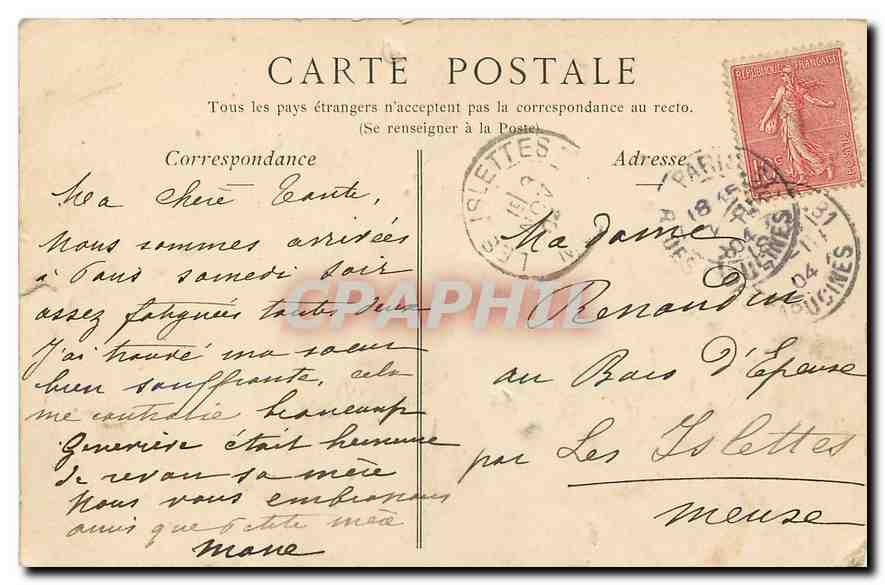 CARTE POSTALE
Tous les pays étrangers n'acceptent pas la correspondance au recto.
(Se renseigner à la Poste).
Correspondance
Ma chère Tante,
Nous sommes arrivées
à Paris samedi soir
assez fatiguées toutes deux
J'ai trouvé ma soeur
bien souffrante, cela
me contrarie beaucoup
Geneviève était heureuse
de revoir sa mère
Nous vous embrassons
ainsi que Petite mère
Adresse
Madame
Renaudin
au Bois d'Epense
par Les Islettes
Meuse
RÉPUBLIQUE FRANÇAISE
POSTES
LES ISLETTES
PARIS
04
CPAPHIL